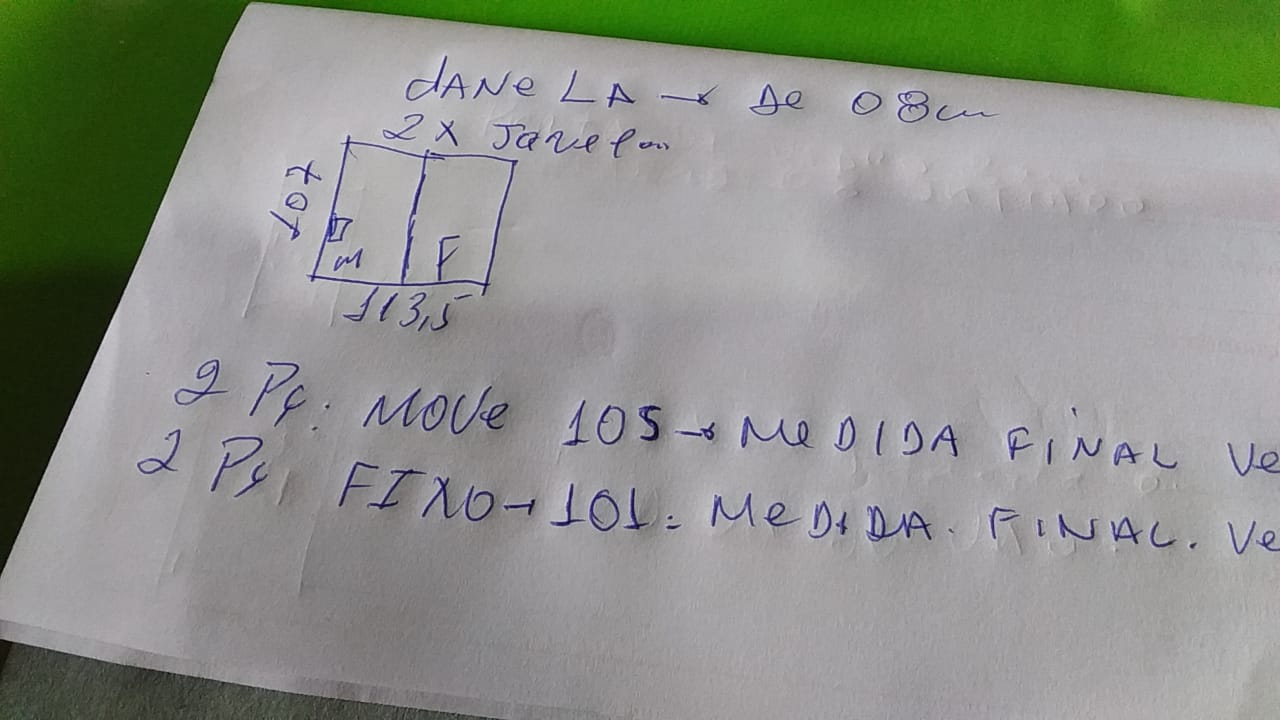 JANELA → De 08cm
2 x Janelas
107
M F
113,5
2 Pç. MOVe 105 → MeDIDA FINAL Ve
2 Pç. FIXO → 101. MeDIDA. FINAL. Ve